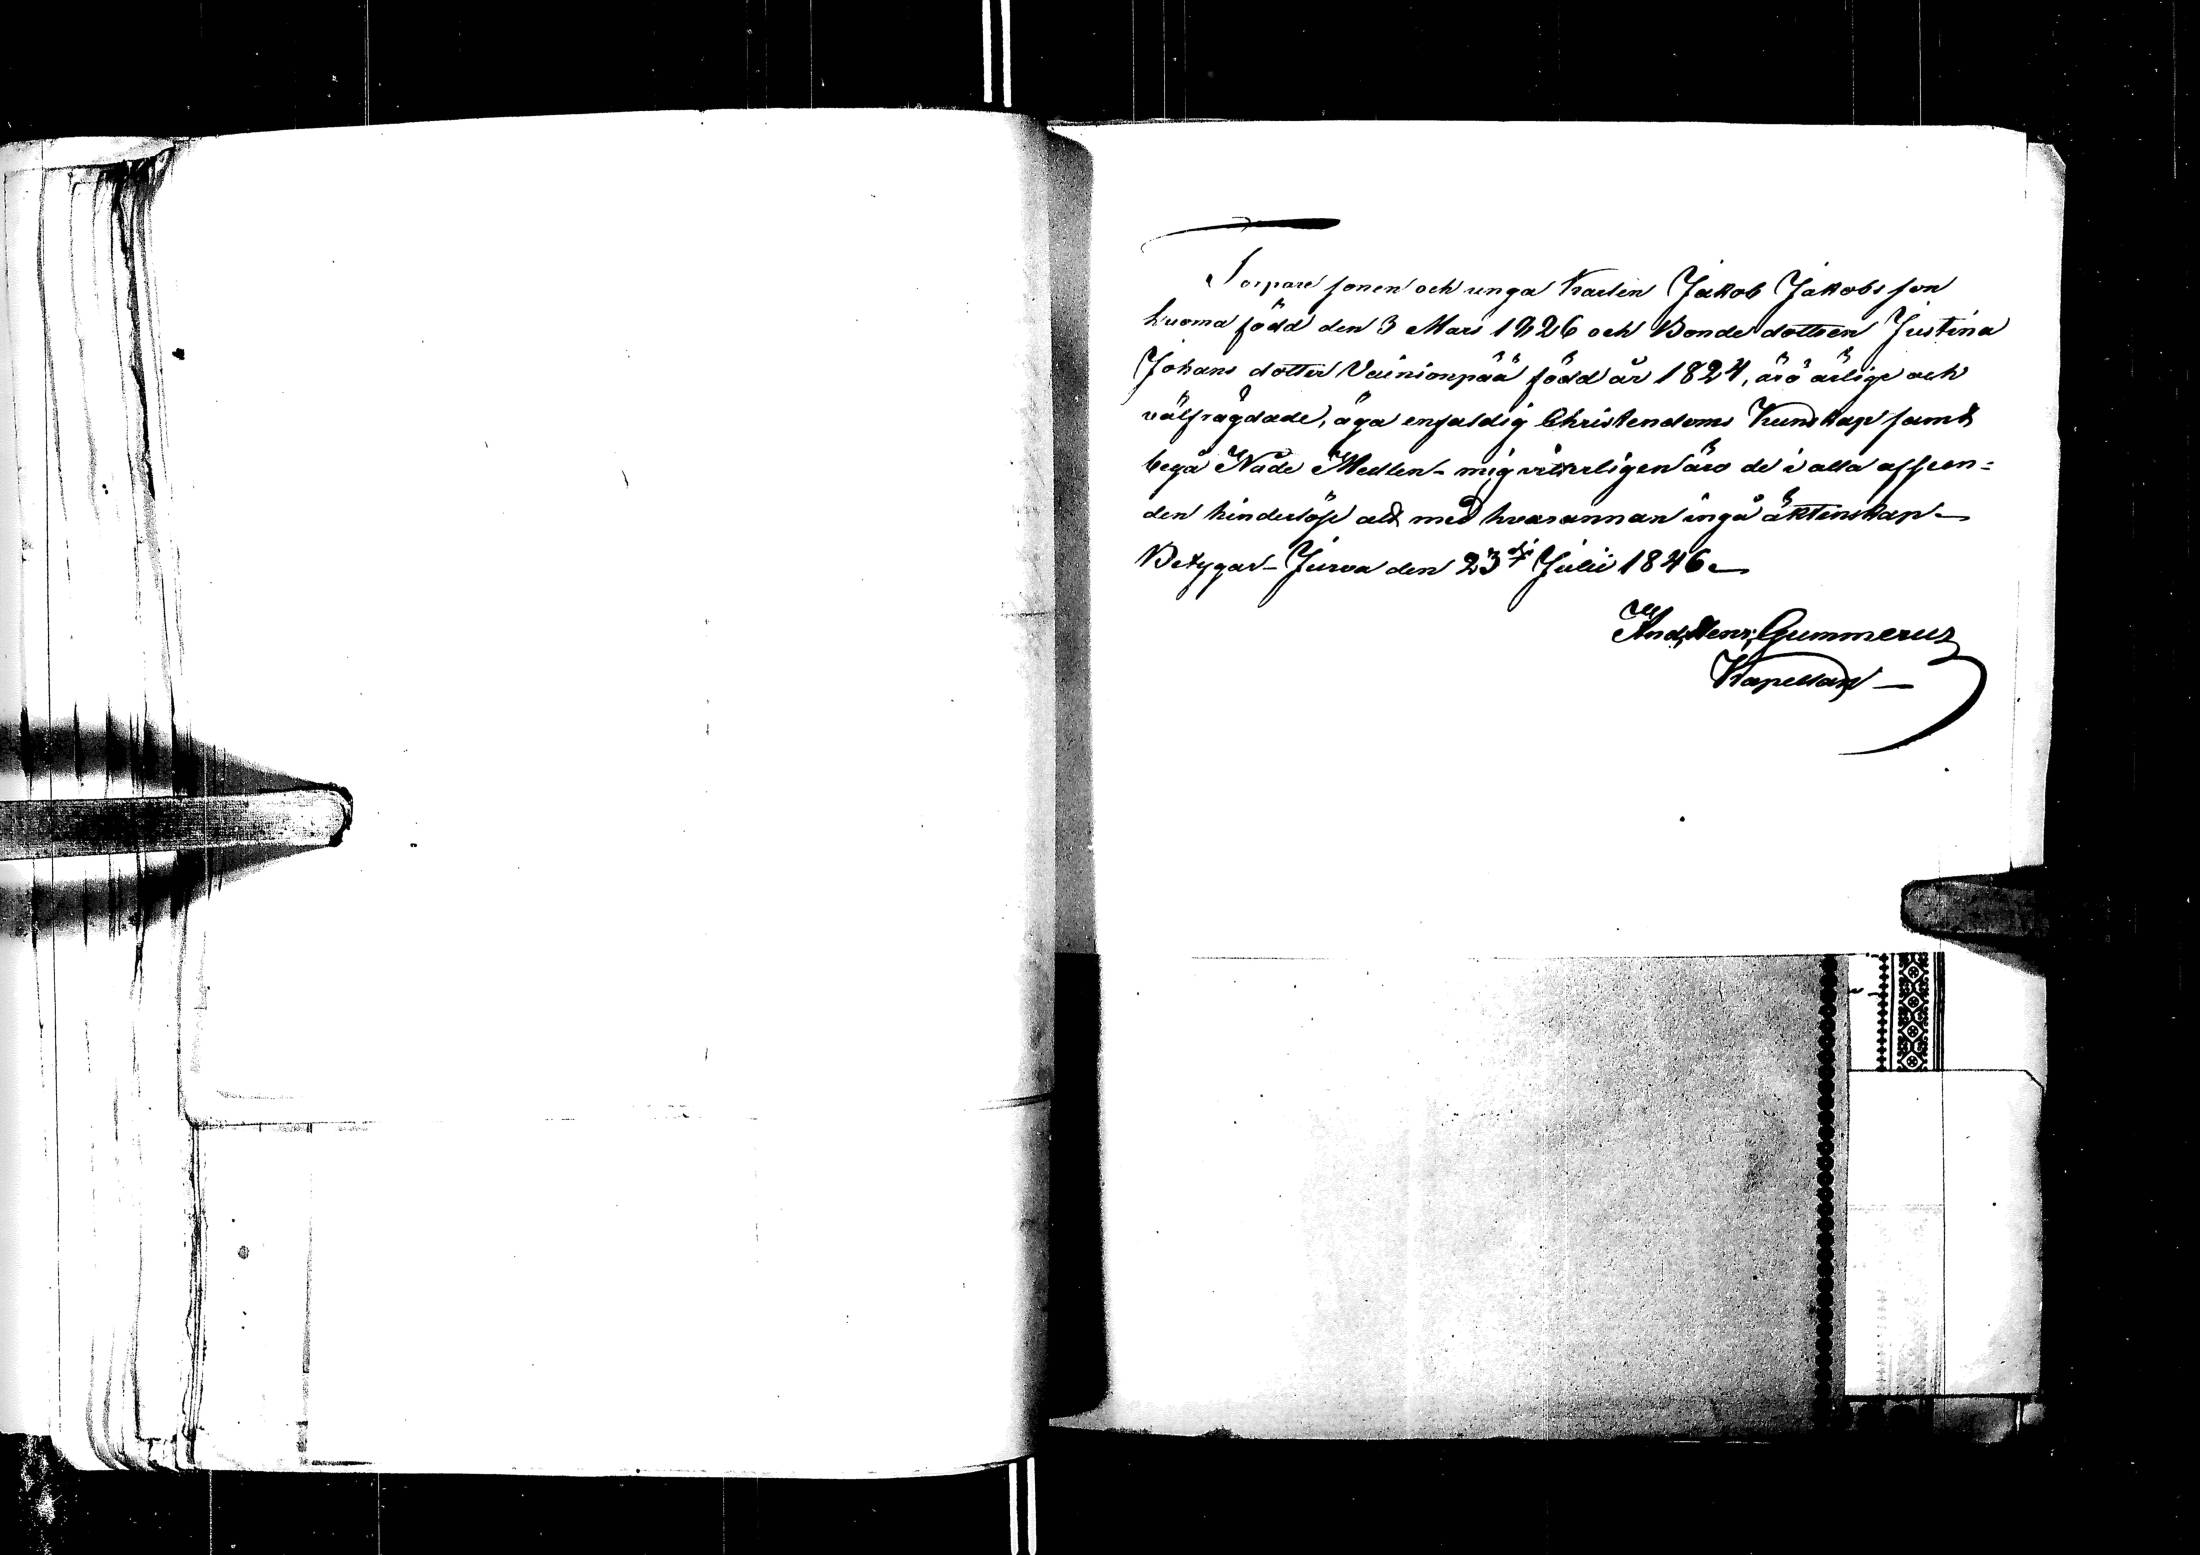 Torpare sonen och unga Karlen Jakob Jakobs son
Luoma född den 3 Mars 1826 och Bonde dottren Justina
Johans dotter Vainionpää född år 1824, äro ärlige och
välfrägdade, äga enfaldig Christendoms Kunskap samt
begå Nåde Medlen - mig vitterligen äro de i alla afseen=
den hinderlöse att med hvarannan ingå äktenskap -
Betygar - Jurva den 23dje Julii 1846 -
And, Henr, Gummerus
Kapellan -